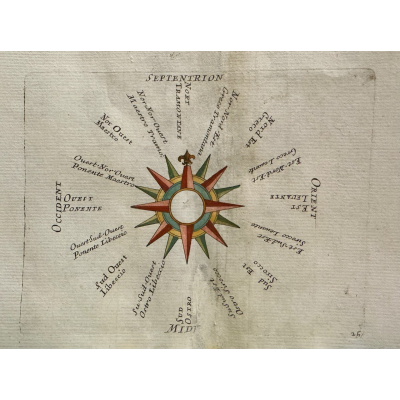 SEPTENTRION
NORT
TRAMONTANE
Nor-Nord-Est
Greco Tramontane
Nord Est
Greco
Est-Nord-Est
Greco Levante
ORIENT
EST
LEVANTE
Est-Sud-Est
Sirocco Levante
Sud Est
Sirocco
Su-Sud-Est
Ostro Sirocco
SUD
OSTRO
MIDI
Su-Sud-Ouest
Ostro Libeccio
Sud Ouest
Libeccio
Ouest-Sud-Ouest
Ponente Libeccio
OCCIDENT
OUEST
PONENTE
Ouest-Nor-Ouest
Ponente Maestro
Nor Ouest
Maestro
Nor-Nor-Ouest
Maestro Tramo